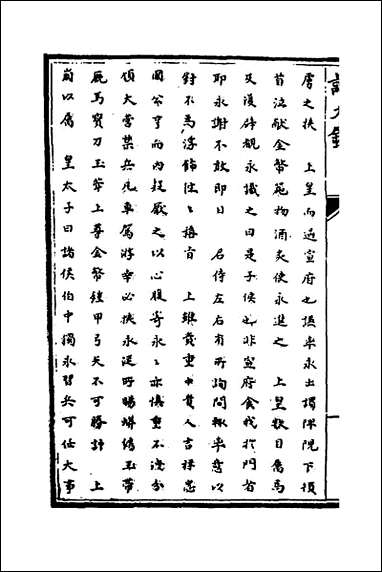 虜之挾　上皇而過宣府也誣率永出謁伴阬下頓
首泣獻金幣范物酒炙使永進之　上皇數目屬焉
及復辟覩永識之曰是子侯也非宣府食我於門者
耶永謝不敢即日　召侍左右有所詢問輒率意以
對不為浮飾往往稱旨　上雖貴重中貴人吉祥忠
國公亨而內疑厭之以心腹寄永永亦慎重不洩分
領大營禁兵凡車駕游幸必挾永從所賜蟒繡玉帶
厩馬寶刀玉帶上尊金幣鎧甲弓矢不可勝計　上
崩以屬　皇太子曰諸侯伯中獨永習兵可任大事